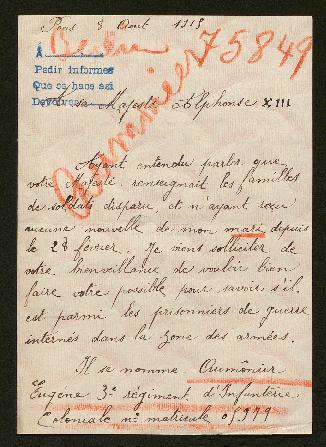 Paris 8 Août 1915
Berlin 75849
À
Pedir informes
Que se hace así
Devolverse
Aumônier
A sa Majesté Alphonse XIII
Ayant entendu parler que
votre Majesté, renseignait les familles
de soldats disparu, et n'ayant reçu
aucune nouvelle de mon mari depuis
le 28 février. Je viens solliciter de
votre bienveillance de vouloir bien
faire votre possible pour savoir s'il
est parmi les prisonniers de guerre
internés dans la zone des armées.
Il se nomme Aumônier
Eugène 3e régiment d'Infanterie
Coloniale no matricule